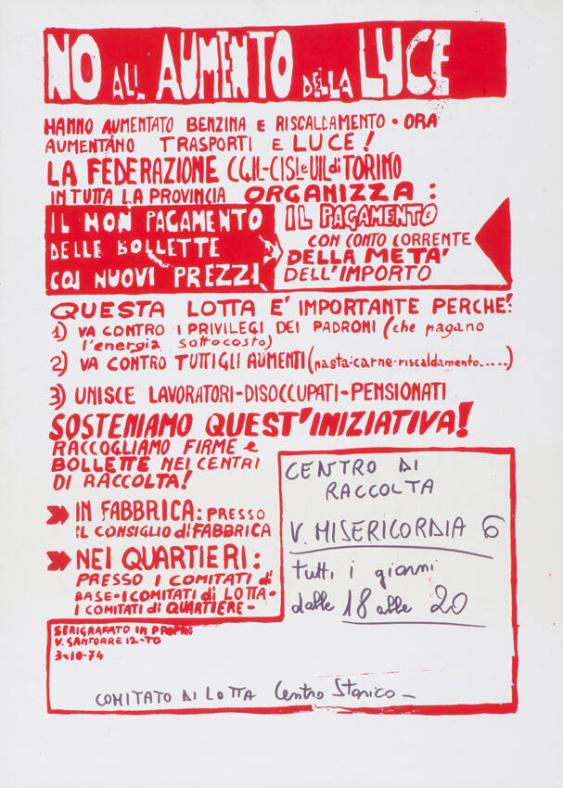 NO ALL' AUMENTO DELLA LUCE
HANNO AUMENTATO BENZINA E RISCALDAMENTO • ORA
AUMENTANO TRASPORTI E LUCE!
LA FEDERAZIONE CGIL-CISL e UIL di TORINO
IN TUTTA LA PROVINCIA ORGANIZZA:
IL NON PAGAMENTO
DELLE BOLLETTE
COI NUOVI PREZZI
IL PAGAMENTO
CON CONTO CORRENTE
DELLA META'
DELL'IMPORTO
QUESTA LOTTA E' IMPORTANTE PERCHE':
1) VA CONTRO I PRIVILEGI DEI PADRONI (che pagano
l'energia sottocosto)
2) VA CONTRO TUTTI GLI AUMENTI (pasta-carne-riscaldamento.....)
3) UNISCE LAVORATORI-DISOCCUPATI-PENSIONATI
SOSTENIAMO QUEST'INIZIATIVA!
RACCOGLIAMO FIRME e
BOLLETTE NEI CENTRI
DI RACCOLTA!
IN FABBRICA: PRESSO
IL CONSIGLIO di FABBRICA
NEI QUARTIERI:
PRESSO I COMITATI di
BASE-I COMITATI di LOTTA-
I COMITATI di QUARTIERE-
CENTRO DI
RACCOLTA
V. MISERICORDIA 6
tutti i giorni
dalle 18 alle 20
SERIGRAFATO IN PROPRIO
V. SANTORRE 12-TO
3-10-74
COMITATO DI LOTTA Centro Storico-